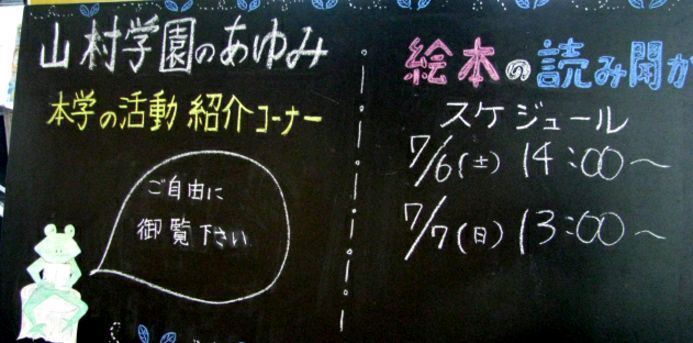 山村学園のあゆみ
本学の活動 紹介コーナー
ご自由に
御覧下さい
絵本の読み聞か
スケジュール
7/6(土) 14:00〜
7/7(日) 13:00〜